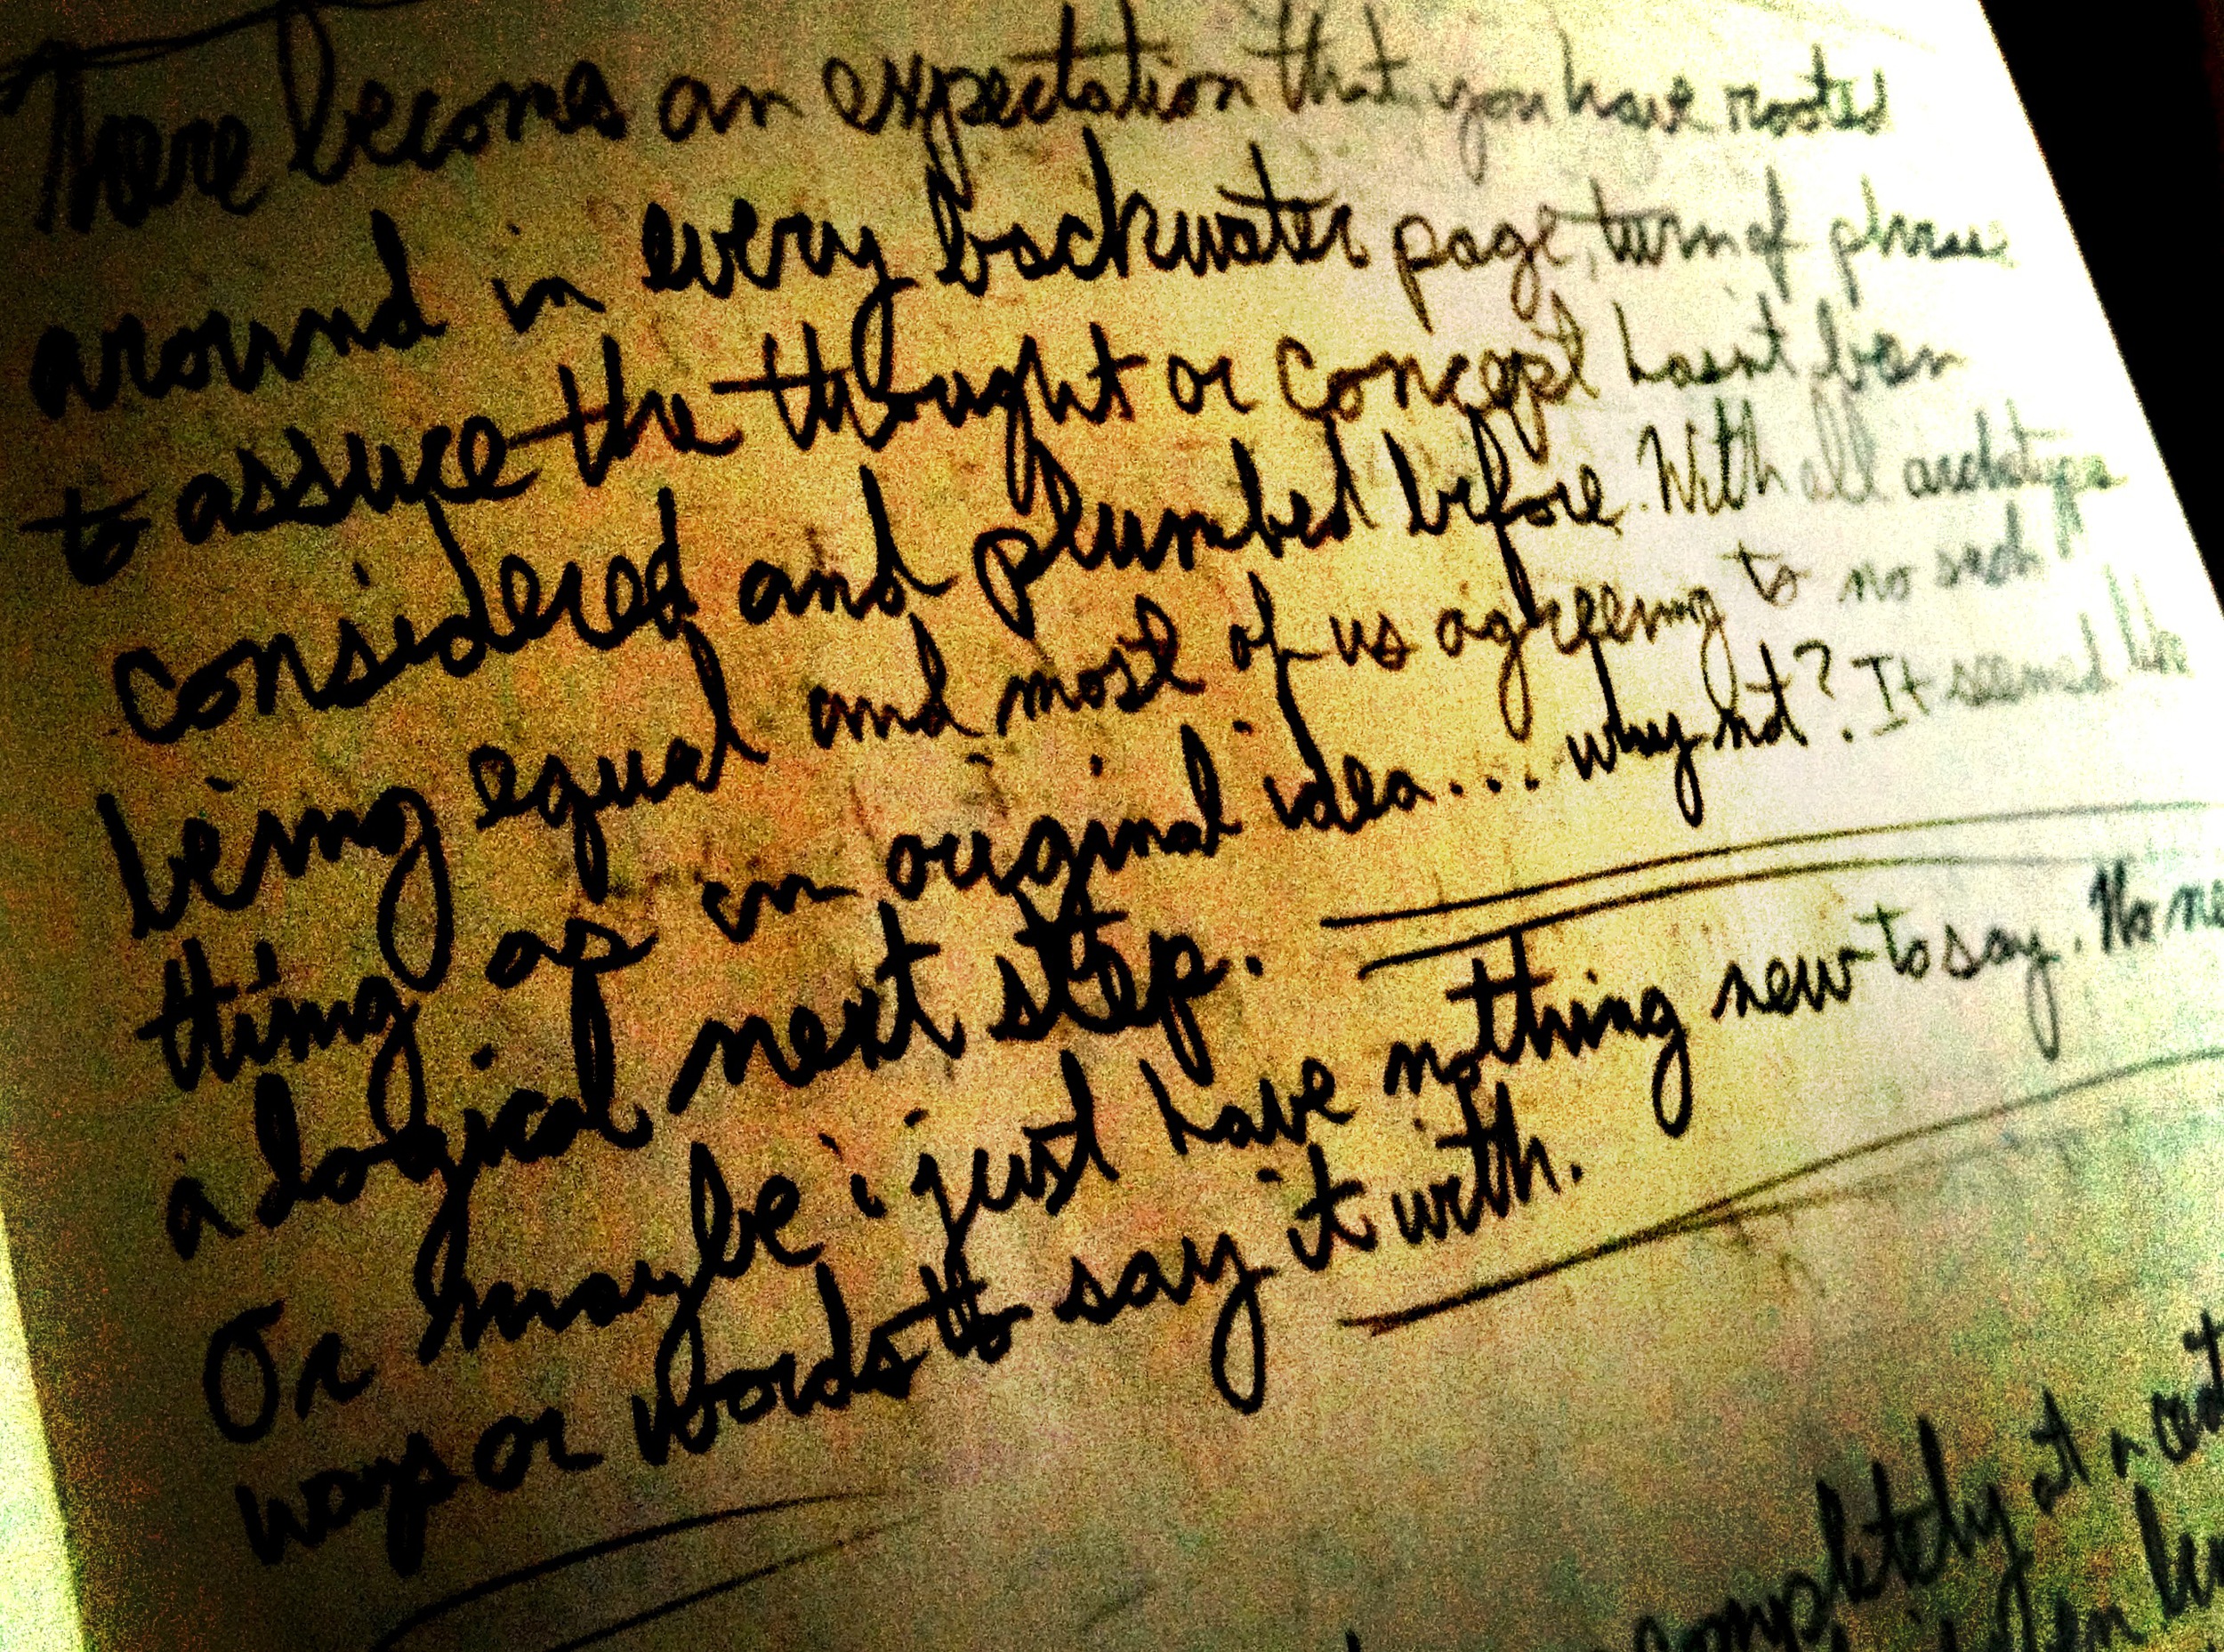 There becomes an expectation that you have rooted
around in every backwater page, turn of phrase
to assure the thought or concept hasn't been
considered and plumbed before. With all archetypes
being equal and most of us agreeing to no such
thing as an original idea... why not? It seemed like
a logical next step.
Or maybe i just have nothing new to say. No new
ways or words to say it with.
completely at a